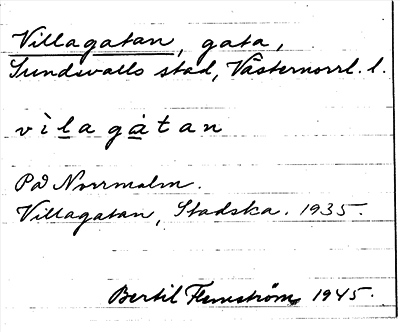 Villagatan, gata,
Sundsvalls stad, Västernorrl. l.
vìlagàtan
På Norrmalm.
Villagatan, Stadska. 1935.
Bertil Flemström, 1945.